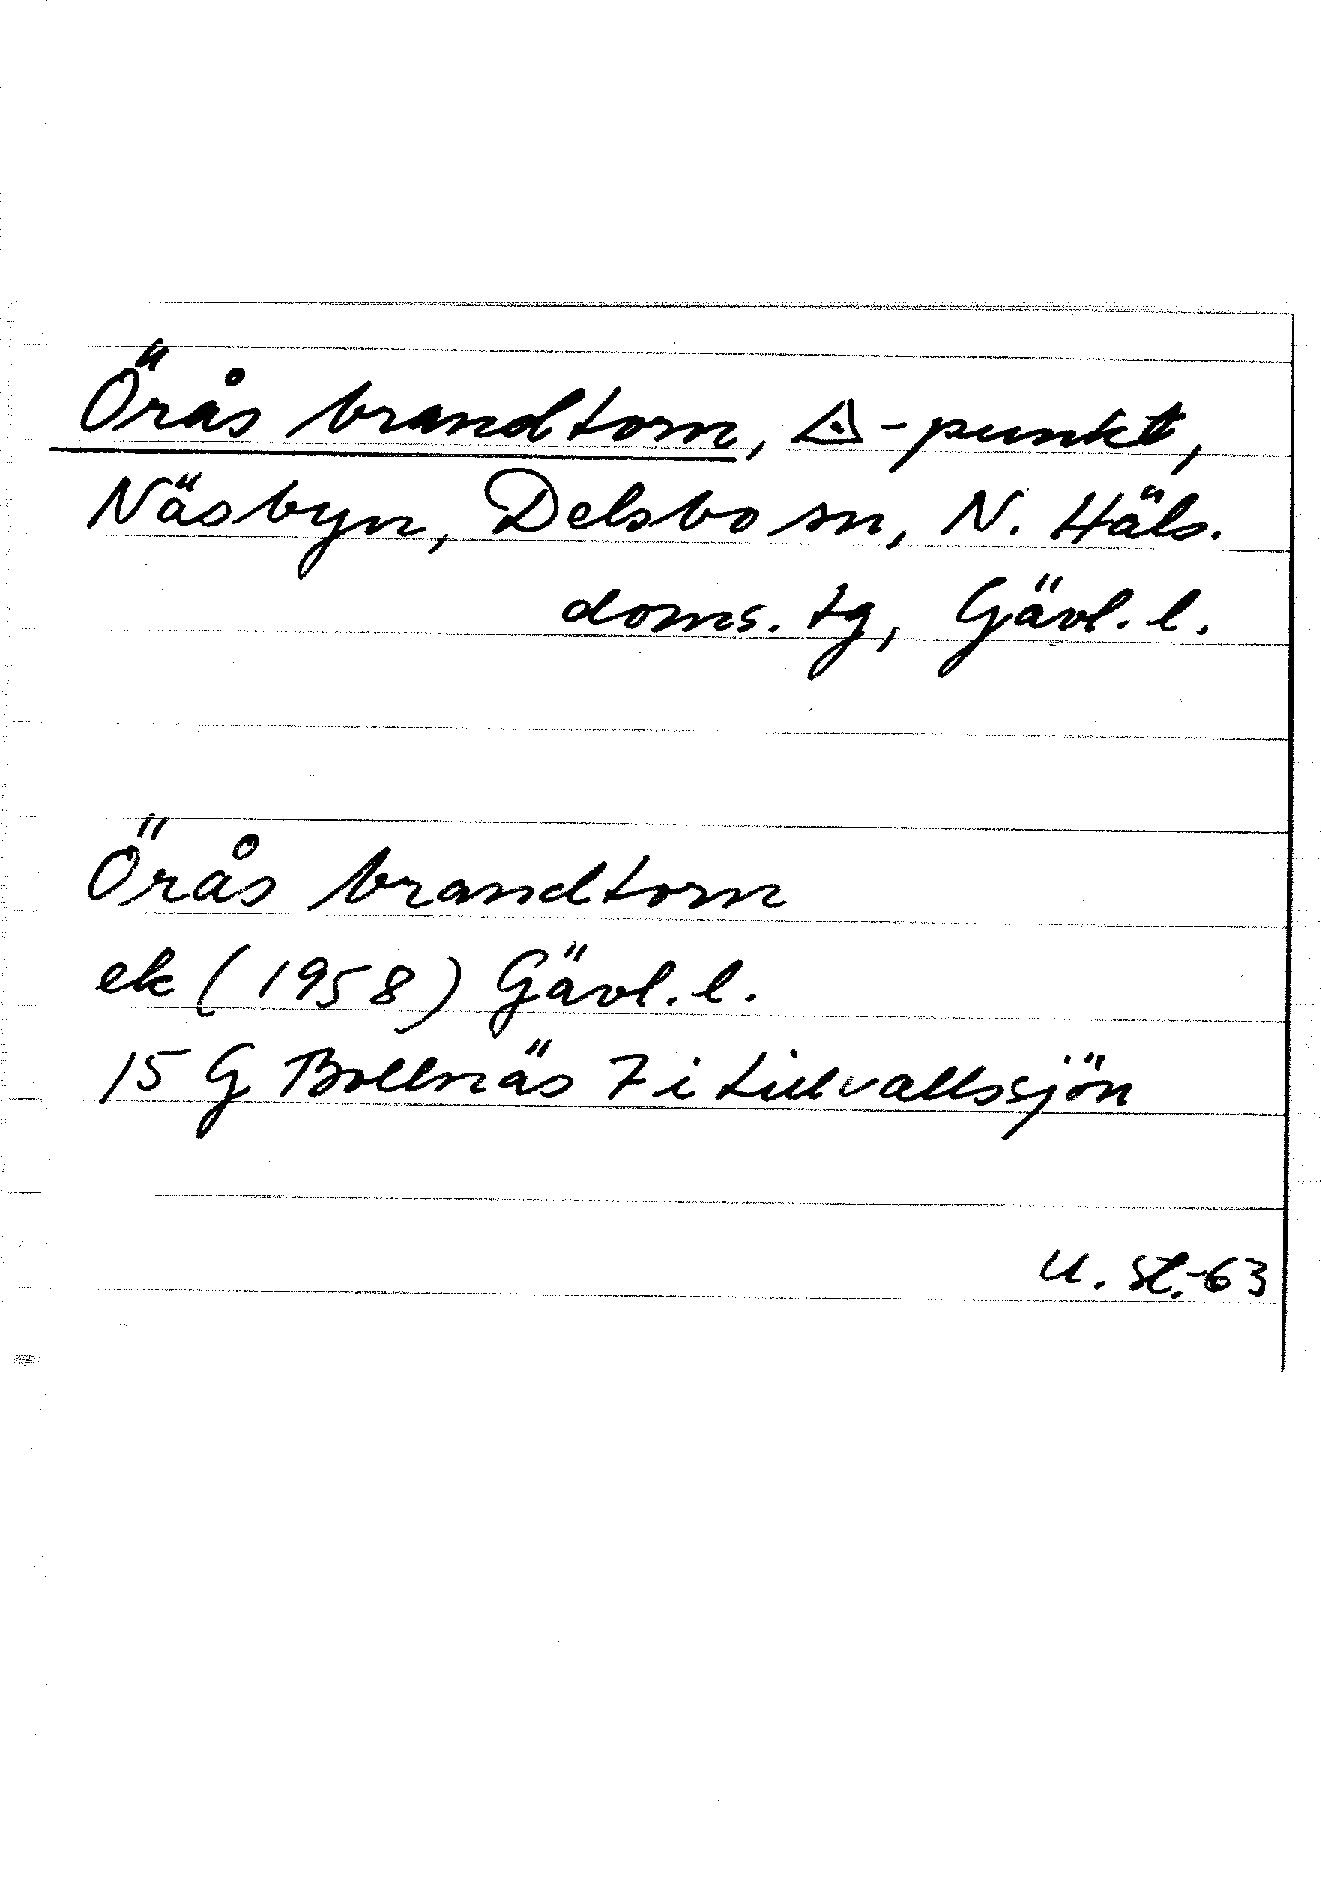 Örås brandtorn, ◬-punkt,
Näsbyn, Delsbo sn, N. Häls.
doms. tg, Gävl. l.
Örås brandtorn
ek (1958) Gävl. l.
15 G Bollnäs 7 i Lillvallssjön
U. St.-63